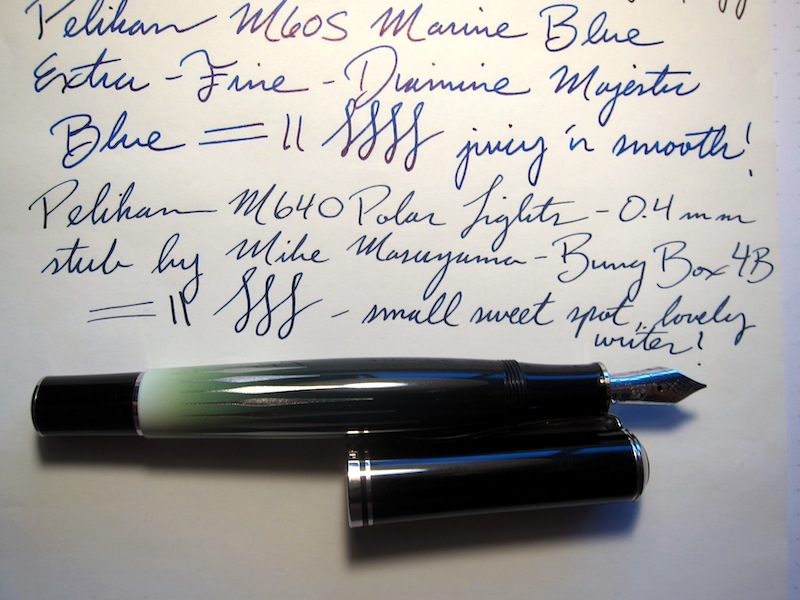 Pelikan M605 Marine Blue
Extra-Fine - Diamine Majestic
Blue = 11 juicy 'n smooth!
Pelikan M640 Polar Lights - 0.4 mm
stub by Mike Masuyama - Bung Box 4B
= 11 - small sweet spot, lovely
writer!